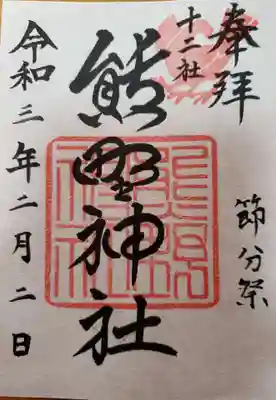 奉拝
節分祭
十二社
熊野神社
令和三年二月二日